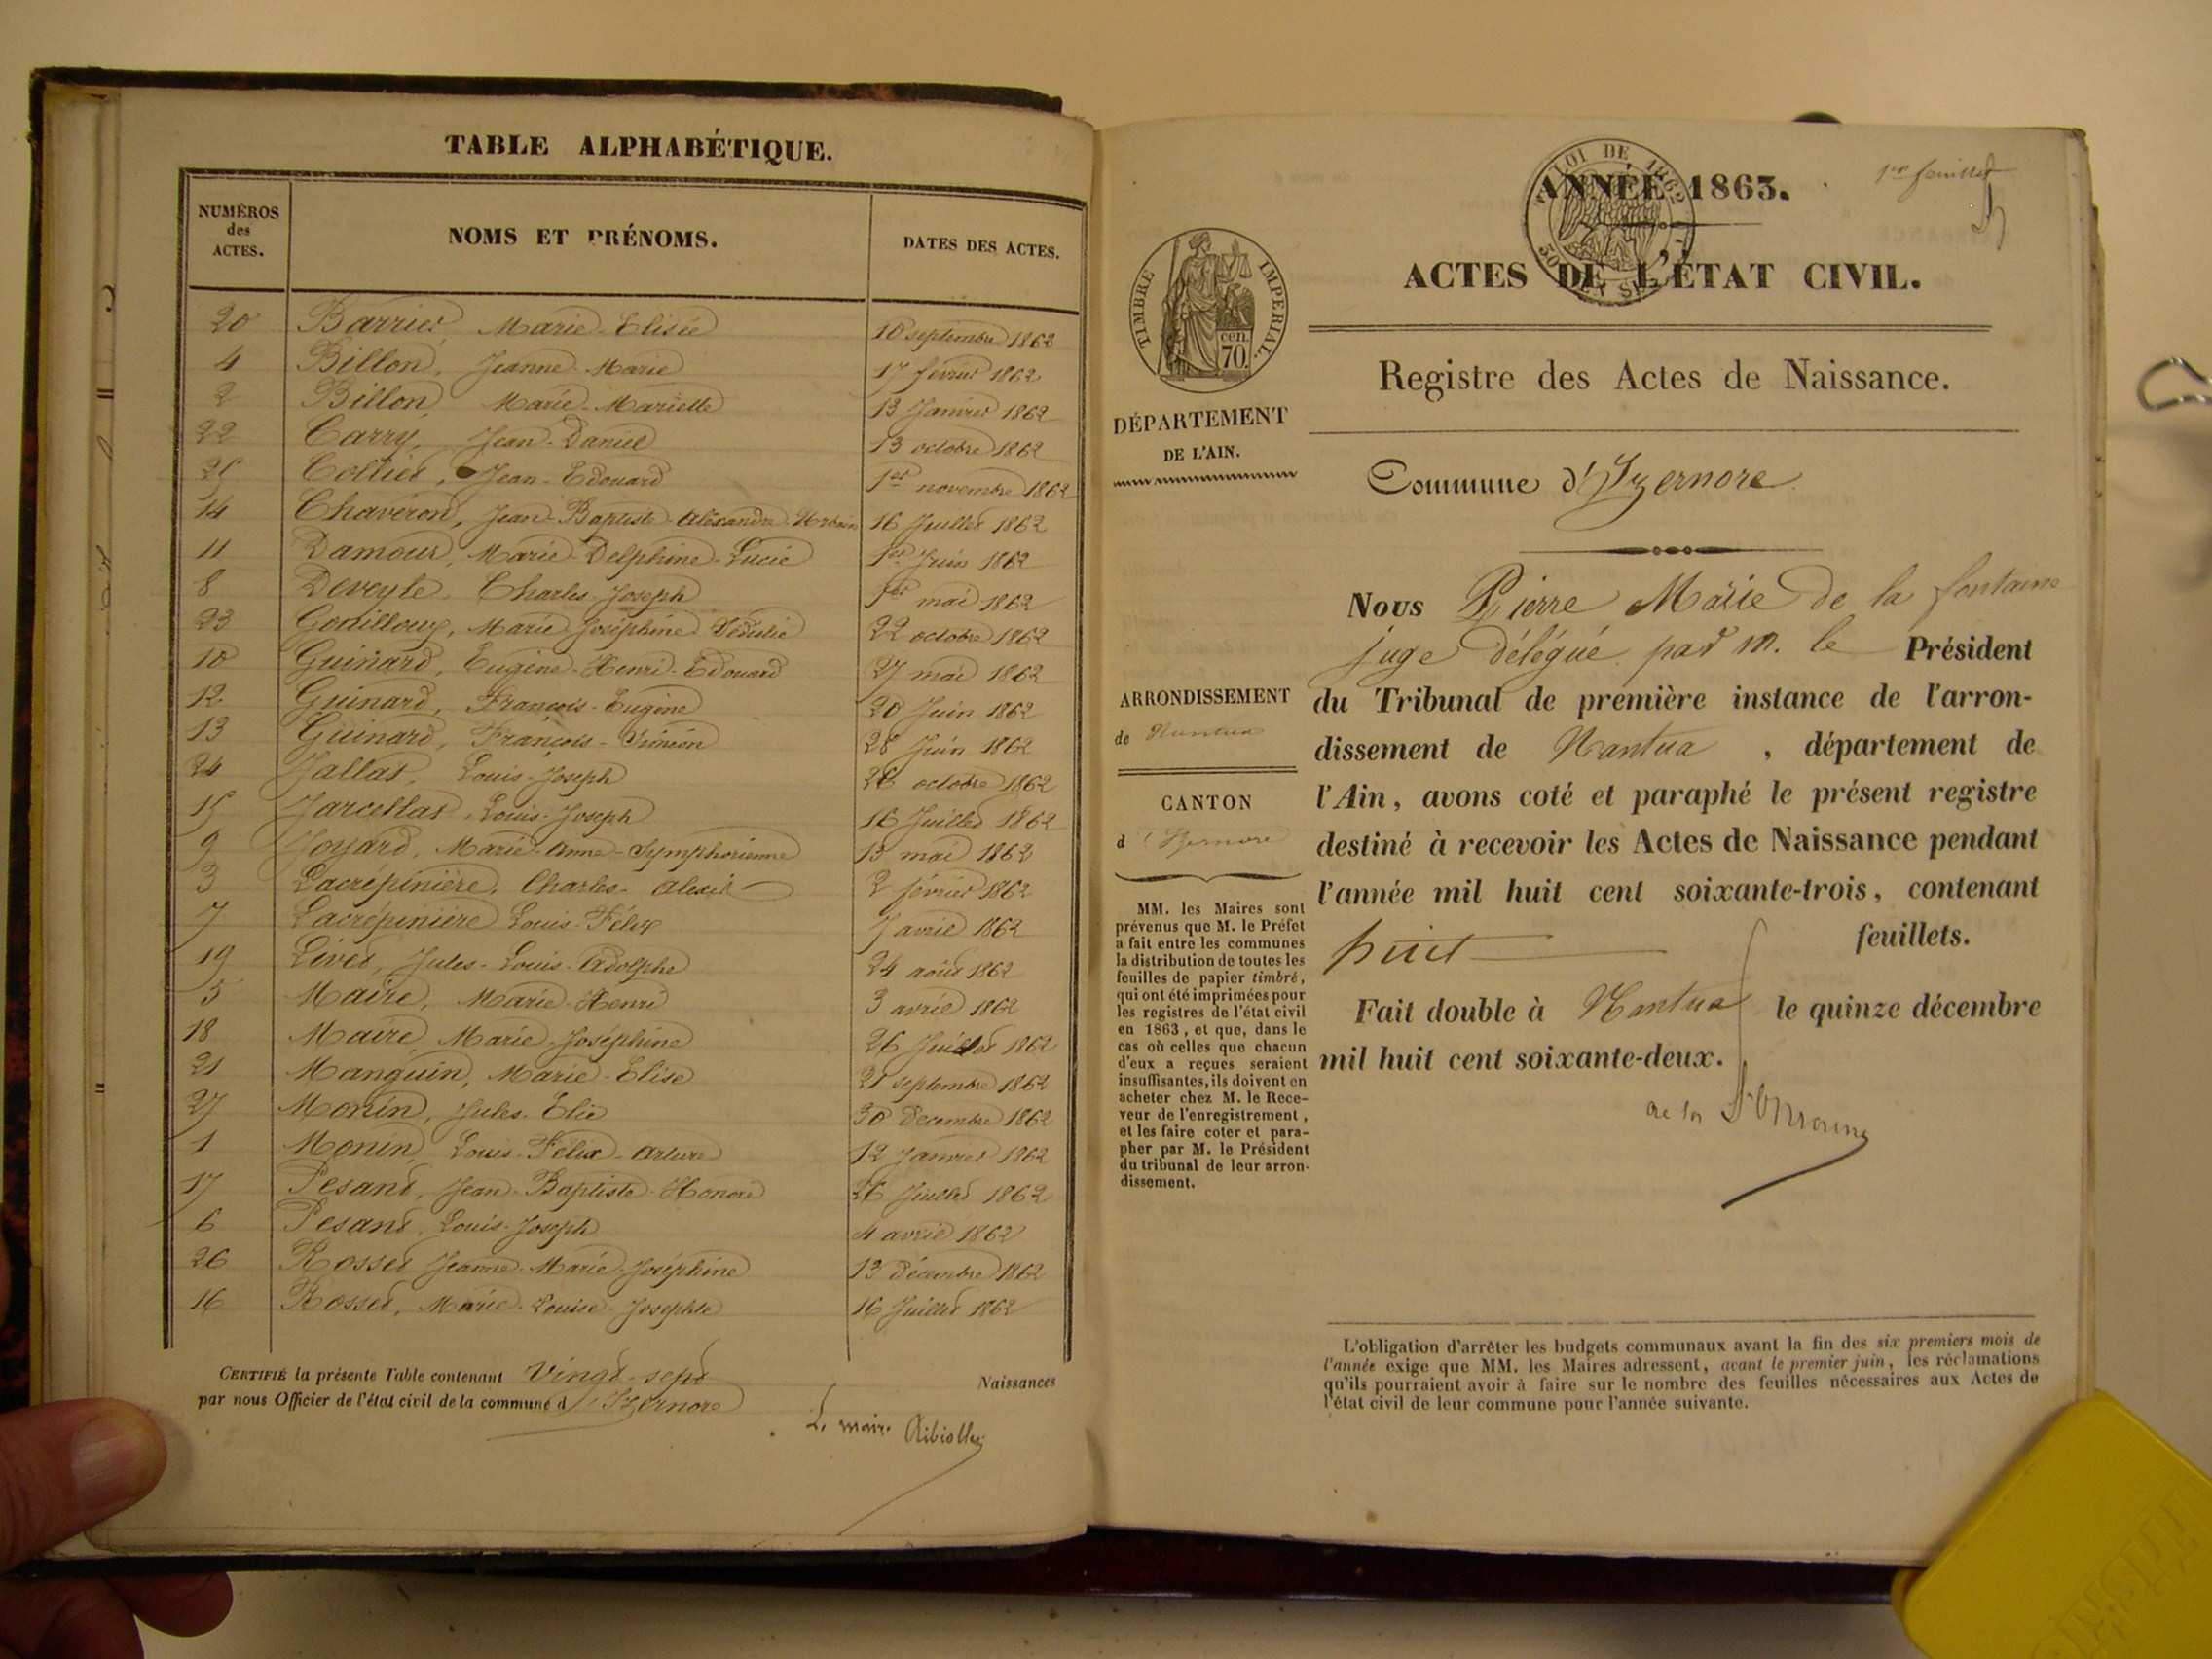 TABLE ALPHABÉTIQUE.
NUMÉROS
des
ACTES.
NOMS ET PRÉNOMS.
DATES DES ACTES.
20 Barrier Marie-Elisée 10 septembre 1862
4 Billon, Jeanne-Marie 17 février 1862
2 Billon, Marie-Mariette 13 Janvier 1862
22 Carry, Jean-Daniel 13 octobre 1862
25 Collier, Jean-Edouard 1er novembre 1862
14 Chaveron, Jean-Baptiste-Alexandre-Urbain 16 Juillet 1862
11 Damour, Marie-Delphine-Lucie 1er Juin 1862
8 Deveyle, Charles-Joseph 1er mai 1862
23 Marie-Joséphine 22 octobre 1862
10 Guinard, Eugène-Henri-Edouard 27 mai 1862
12 Guinard, François-Eugène 20 Juin 1862
13 Guinard, François-Siméon 28 Juin 1862
24 Jallat, Louis-Joseph 26 octobre 1862
15 Jarcellat, Louis-Joseph 16 Juillet 1862
9 Joyard, Marie-Anne-Symphorienne 13 mai 1862
3 Lacrépinière, Charles-Alexis 2 février 1862
7 Lacrépinière Louis-Félix 7 avril 1862
19 Livet, Jules-Louis-Adolphe 24 août 1862
5 Maire, Marie-Henri 3 avril 1862
18 Maire, Marie-Joséphine 26 Juillet 1862
21 Manguin, Marie-Elise 21 septembre 1862
27 Monin, Jules-Elie 30 Décembre 1862
1 Monin, Louis-Félix-Arture 12 Janvier 1862
17 Pesant, Jean-Baptiste-Honoré 26 Juillet 1862
6 Pesant, Louis-Joseph 4 avril 1862
26 Rosset Jeanne-Marie-Joséphine 13 Décembre 1862
16 Rosset, Marie-Louise-Josephte 16 Juillet 1862
CERTIFIÉ la présente Table contenant Vingt-sept Naissances
par nous Officier de l'état civil de la commune d'Izernore
Le maire Ribiollet
1er feuillet
LOI DE 1862
ANNÉE 1863.
ACTES DE L'ÉTAT CIVIL.
Registre des Actes de Naissance.
TIMBRE IMPERIAL.
cen.
70.
DÉPARTEMENT
DE L'AIN.
Commune d'Izernore
Nous Pierre Marie de la fontaine
juge délégué par M. le Président
du Tribunal de première instance de l'arron-
dissement de Nantua, département de
l'Ain, avons coté et paraphé le présent registre
destiné à recevoir les Actes de Naissance pendant
l'année mil huit cent soixante-trois, contenant
huit feuillets.
Fait double à Nantua le quinze décembre
mil huit cent soixante-deux.
ARRONDISSEMENT
de Nantua
CANTON
d'Izernore
MM. les Maires sont
prévenus que M. le Préfet
a fait entre les communes
la distribution de toutes les
feuilles de papier timbré,
qui ont été imprimées pour
les registres de l'état civil
en 1863, et que, dans le
cas où celles que chacun
d'eux a reçues seraient
insuffisantes, ils doivent en
acheter chez M. le Rece-
veur de l'enregistrement,
et les faire coter et para-
pher par M. le Président
du tribunal de leur arron-
dissement.
L'obligation d'arrêter les budgets communaux avant la fin des six premiers mois de
l'année exige que MM. les Maires adressent, avant le premier juin, les réclamations
qu'ils pourraient avoir à faire sur le nombre des feuilles nécessaires aux Actes de
l'état civil de leur commune pour l'année suivante.